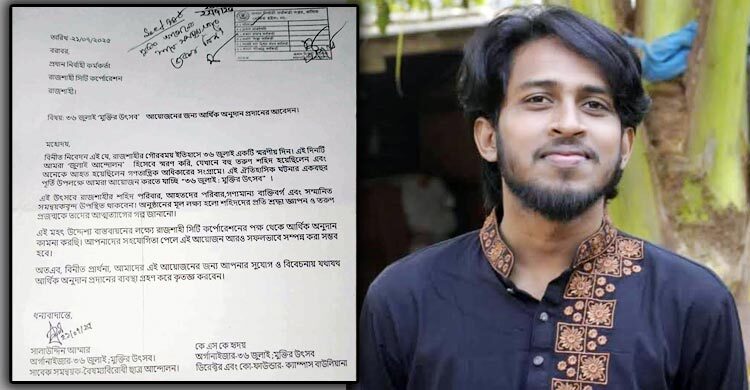 তারিখ -২১/০৭/২০২৫
বরাবর,
প্রধান নির্বাহী কর্মকর্তা
রাজশাহী সিটি কর্পোরেশন
রাজশাহী।
বিষয়: ৩৬ জুলাই 'মুক্তির উৎসব' আয়োজনের জন্য আর্থিক অনুদান প্রদানের আবেদন।
মহোদয়,
বিনীত নিবেদন এই যে, রাজশাহীর গৌরবময় ইতিহাসে ৩৬ জুলাই একটি স্মরণীয় দিন। এই দিনটি
আমরা 'জুলাই আন্দোলন' হিসেবে স্মরণ করি, যেখানে বহু তরুণ শহিদ হয়েছিলেন এবং
অনেকে আহত হয়েছিলেন গণতান্ত্রিক অধিকারের সংগ্রামে। এই ঐতিহাসিক ঘটনার একবছর
পূর্তি উপলক্ষে আমরা আয়োজন করতে যাচ্ছি "৩৬ জুলাই: মুক্তির উৎসব" ।
এই উৎসবে রাজশাহীর শহিদ পরিবার, আহতদের পরিবার,গণ্যমান্য ব্যক্তিবর্গ এবং সম্মানিত
সমন্বয়কবৃন্দ উপস্থিত থাকবেন। অনুষ্ঠানের মূল লক্ষ্য হলো শহিদদের প্রতি শ্রদ্ধা জ্ঞাপন ও তরুণ
প্রজন্মকে তাদের আত্মত্যাগের গল্প জানানো।
এই মহৎ উদ্দেশ্য বাস্তবায়নের লক্ষ্যে রাজশাহী সিটি কর্পোরেশনের পক্ষ থেকে আর্থিক অনুদান
কামনা করছি। আপনাদের সহযোগিতা পেলে এই আয়োজন আরও সফলভাবে সম্পন্ন করা সম্ভব
হবে।
অতএব, বিনীত প্রার্থনা, আমাদের এই আয়োজনের জন্য আপনার সুযোগ ও বিবেচনায় যথাযথ
আর্থিক অনুদান প্রদানের ব্যবস্থা গ্রহণ করে কৃতজ্ঞ করবেন।
ধন্যবাদান্তে,
সালাউদ্দিন আম্মার
অর্গানাইজার-৩৬ জুলাই :মুক্তির উৎসব।
সাবেক সমন্বয়ক-বৈষম্যবিরোধী ছাত্র আন্দোলন।
কে এস কে হৃদয়
অর্গানাইজার-৩৬ জুলাই :মুক্তির উৎসব
ডিরেক্টর এবং কো-ফাউন্ডার- ক্যাম্পাস বাউলিয়ানা